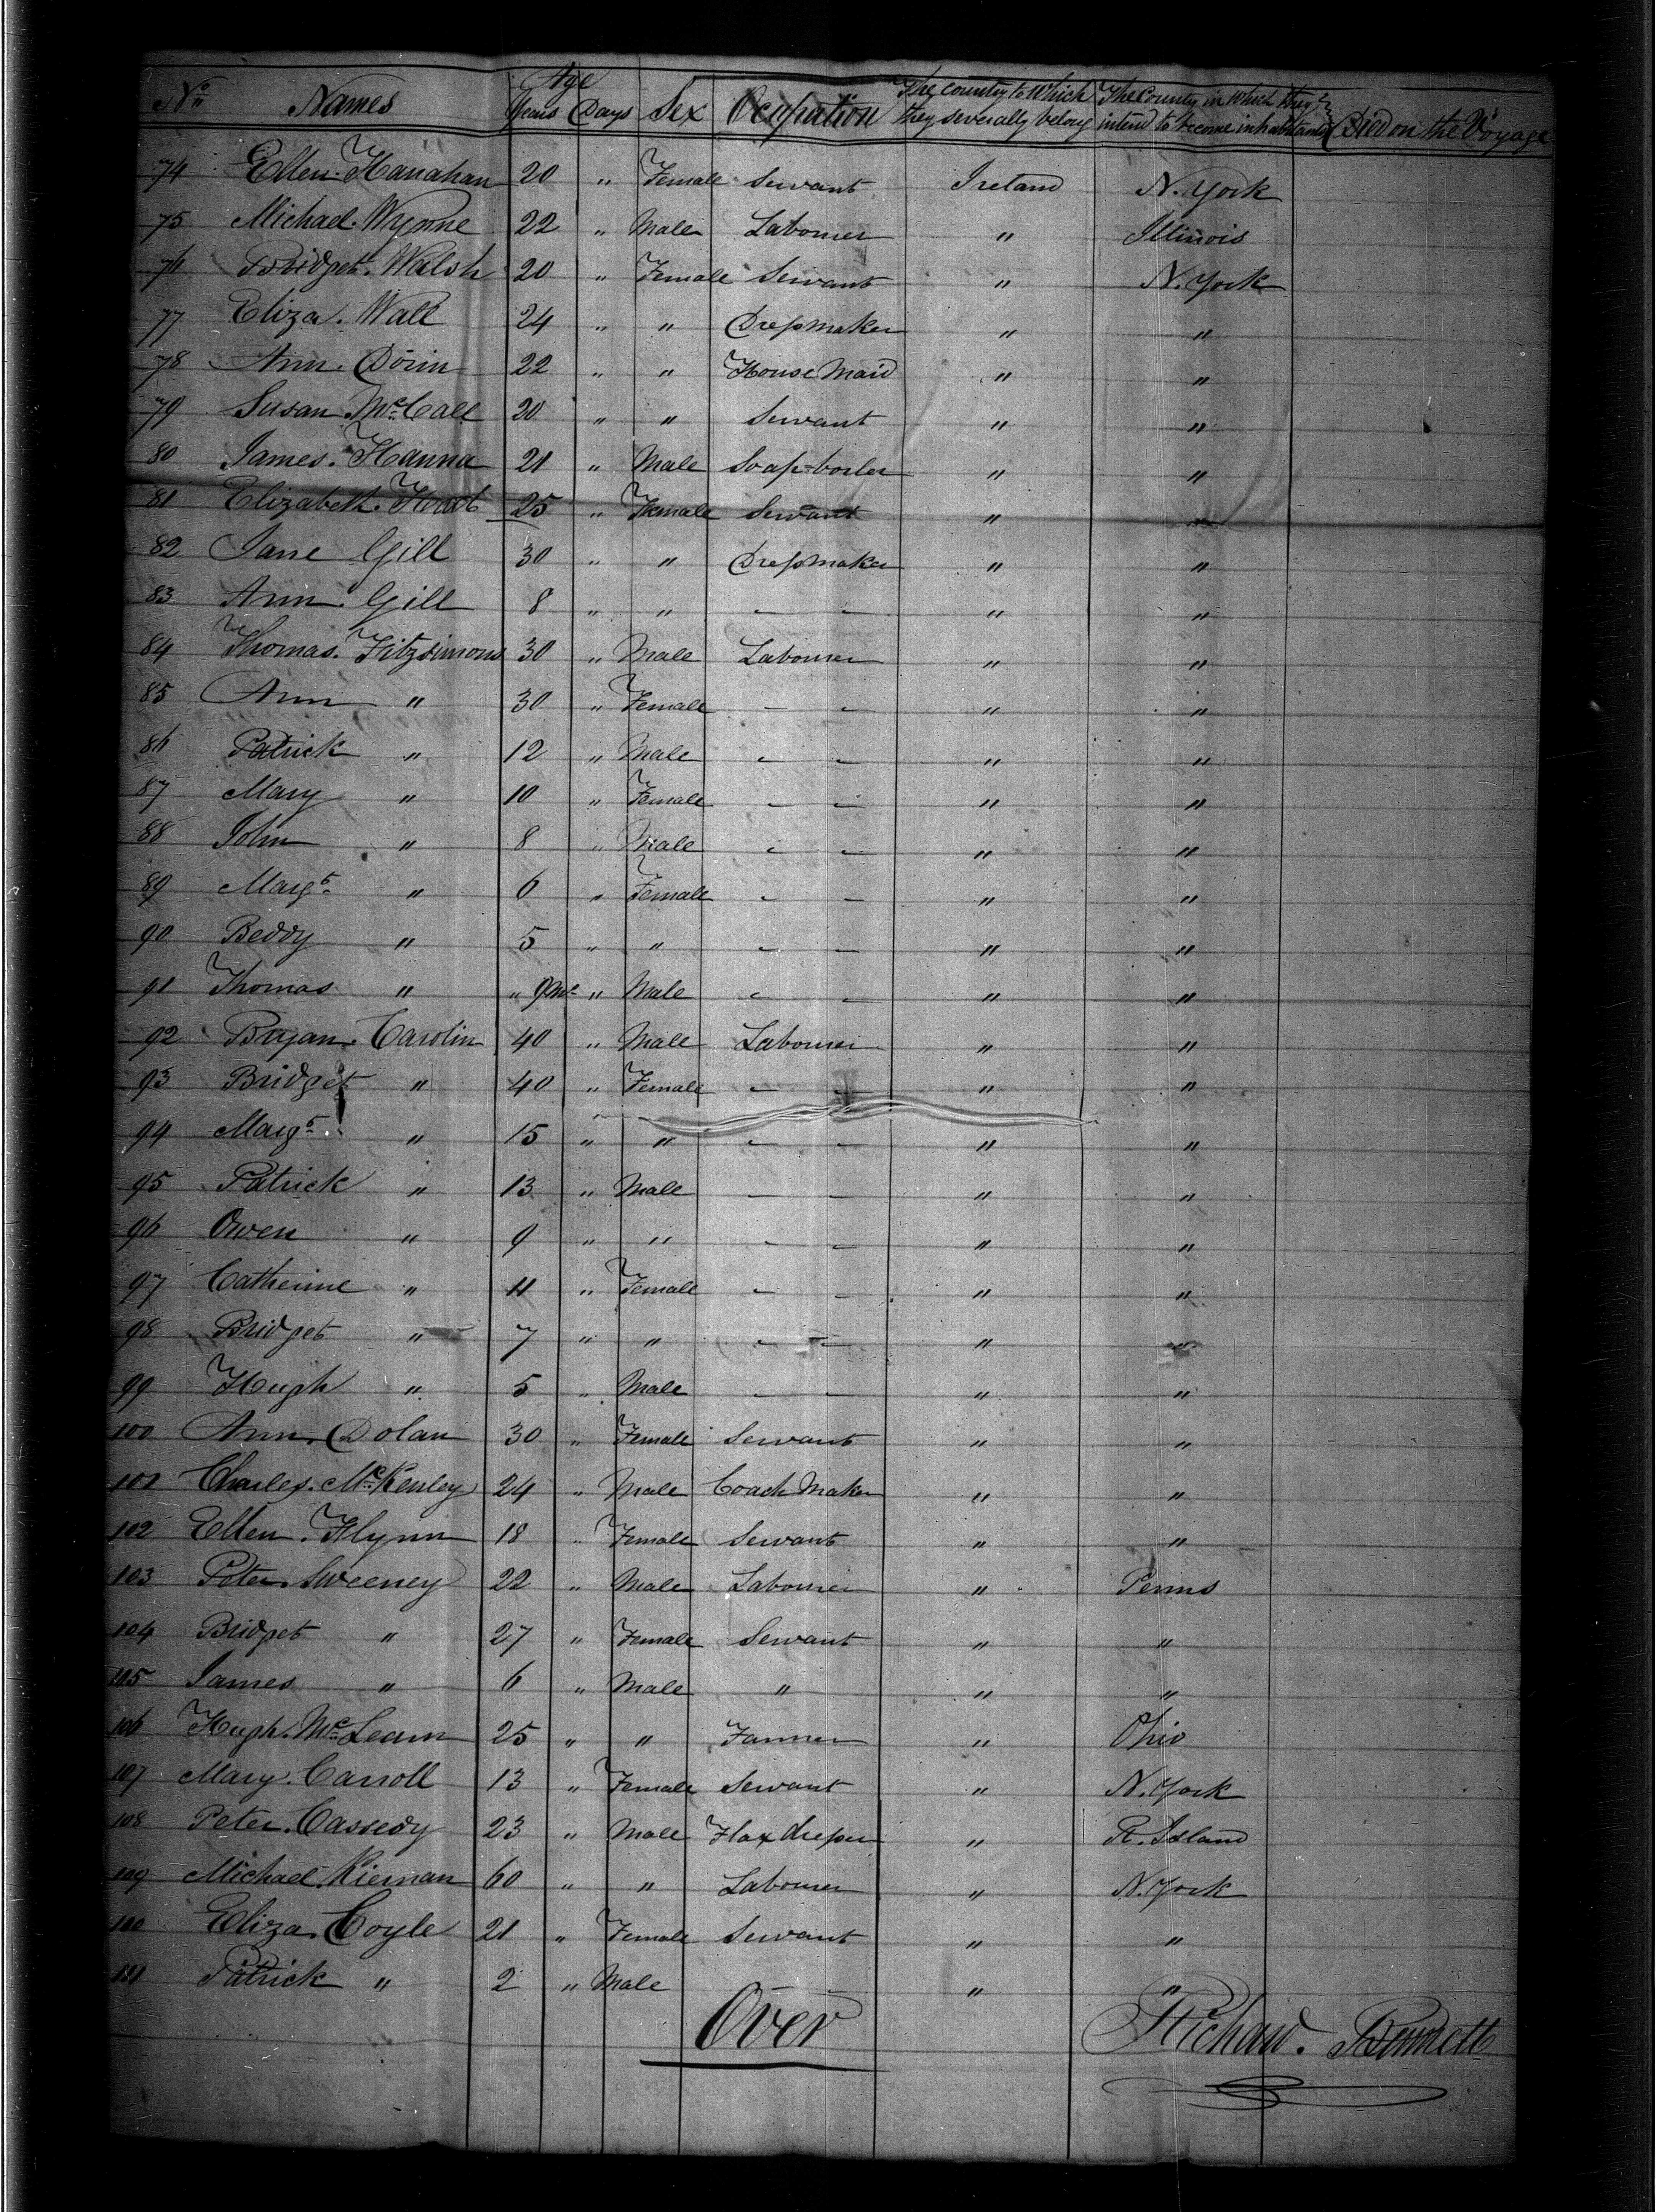 No Names Age Years Days Sex Ocupation The Country to Which they severally belong The County in Which they intend to become inhabitants Died on the Voyage
74 Ellen Hanahan 20 " Female Servant Ireland N. York
75 Michael Wynne 22 " Male Labourer " Illinois
76 Bridget Walsh 20 " Female Servant " N. York
77 Eliza Wall 24 " " Dressmaker " "
78 Ann Dorin 22 " " House Maid " "
79 Susan McCall 20 " " Servant " "
80 James Hanna 21 " Male Soap-boiler " "
81 Elizabeth 25 " Female Servant " "
82 Jane Gill 30 " " Dressmaker " "
83 Ann Gill 8 " " - - " "
84 Thomas Fitzsimons 30 " Male Labourer " "
85 Ann " 30 " Female - - " "
86 Patrick " 12 " Male - - " "
87 Mary " 10 " Female - - " "
88 John " 8 " Male - - " "
89 Margt " 6 " Female - - " "
90 Beddy " 5 " " - - " "
91 Thomas " " 9 Mo " Male - - " "
92 Bryan Carolin 40 " Male Labourer " "
93 Bridget " 40 " Female - - " "
94 Margt " 15 " " - - " "
95 Patrick " 13 " Male - - " "
96 Owen " 9 " " - - " "
97 Catherine " 11 " Female - - " "
98 Bridget " 7 " " - - " "
99 Hugh " 5 " Male - - " "
100 Ann Dolan 30 " Female Servant " "
101 Charles McKenley 24 " Male Coach Maker " "
102 Ellen Flynn 18 " Female Servant " "
103 Peter Sweeney 22 " Male Labourer " Penns
104 Bridget " 27 " Female Servant " "
105 James " 6 " Male " " "
106 Hugh McLearn 25 " " Farmer " Ohio
107 Mary Carroll 13 " Female Servant " N. York
108 Peter Cassedy 23 " Male Flax dresser " R. Island
109 Michael Kiernan 60 " " Labourer " N. York
110 Eliza Coyle 21 " Female Servant " "
111 Patrick " 2 " Male " "
Over
Richard Bennett